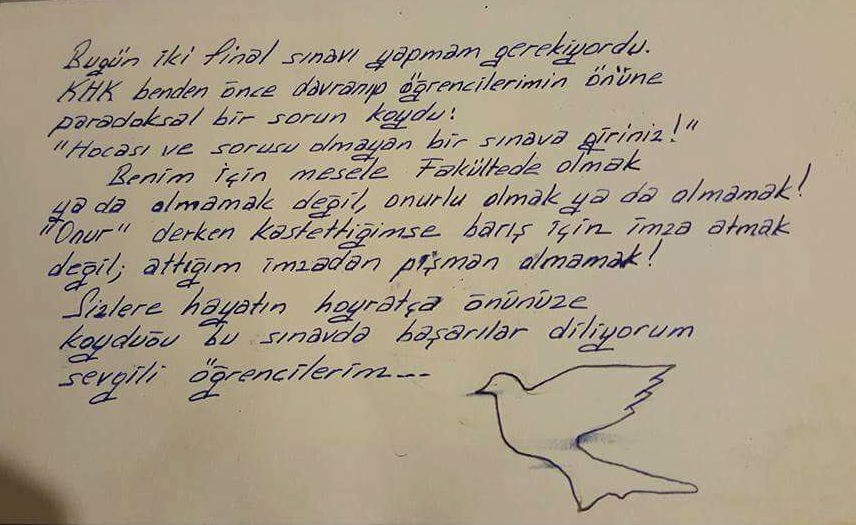 Bugün iki final sınavı yapmam gerekiyordu.
KHK benden önce davranıp öğrencilerimin önüne
paradoksal bir sorun koydu:
"Hocası ve sorusu olmayan bir sınava giriniz!"
Benim için mesele Fakültede olmak
ya da olmamak değil, onurlu olmak ya da olmamak!
"Onur" derken kastettiğimse barış için imza atmak
değil; attığım imzadan pişman olmamak!
Sizlere hayatın hoyratça önünüze
koyduğu bu sınavda başarılar diliyorum
sevgili öğrencilerim...